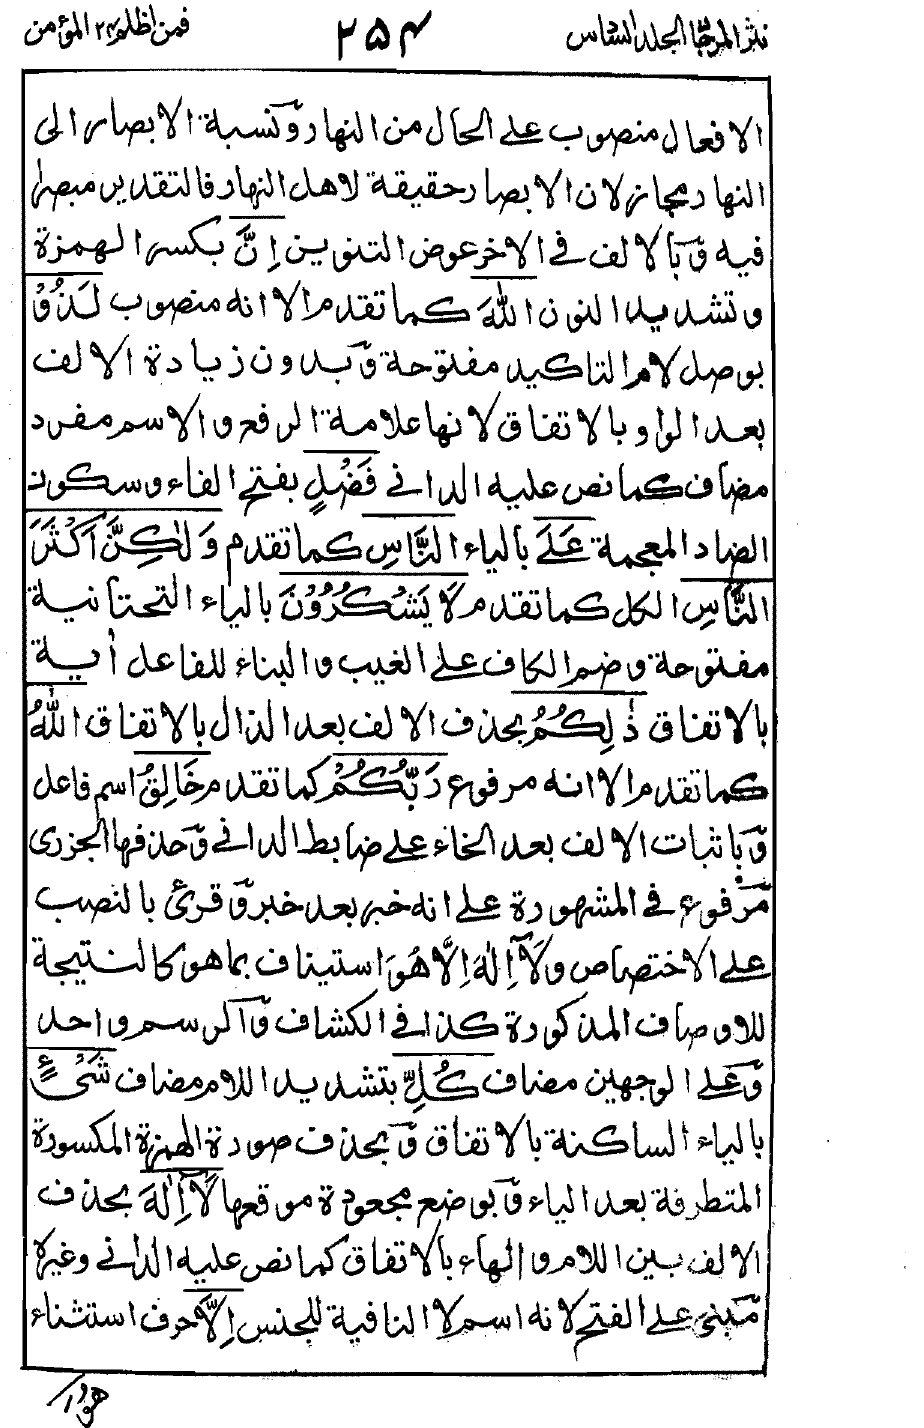 نثر المرجان المجلد السادس ٢٥٤ فمن اظلم ٢٤ المؤمن
الافعال منصوب على الحال من النهار وَنسبة الابصار الى
النهار مجاز لان الابصار حقيقة لاهل النهار فالتقدير مبصرا
فيه وَبالالف فى الاخر عوض التنوين اِنَّ بكسر الهمزة
وتشديد النون اللّٰهَ كما تقدم الا انه منصوب لَذُوْ
بوصل لام التاكيد مفتوحة وَبدون زيادة الالف
بعد الواو بالاتفاق لانها علامة الرفع والاسم مفرد
مضاف كما نص عليه الدانى فَضْلٍ بفتح الفاء وسكون
الضاد المعجمة عَلَى بالياء النَّاسِ كما تقدم وَلٰكِنَّ اَكْثَرَ
النَّاسِ الكل كما تقدم لَا يَشْكُرُوْنَ بالياء التحتانية
مفتوحة وضم الكاف على الغيب والبناء للفاعل أية
بالاتفاق ذٰلِكُمُ بحذف الالف بعد الذال بالاتفاق اللّٰهُ
كما تقدم الا انه مرفوع رَبُّكُمْ كما تقدم خَالِقُ اسم فاعل
وَباثبات الالف بعد الخاء على ضابط الدانى وَحذفها الجزرى
مَرفوع فى المشهورة على انه خبر بعد خبر وَقرئ بالنصب
على الاختصاص ولَآ اِلٰهَ اِلَّا هُوَ استيناف بما هو كالنتيجة
للاوصاف المذكورة كذا فى الكشاف وَالرسم واحد
وَعلى الوجهين مضاف كُلِّ بتشديد اللام مضاف شَىْءٍ
بالياء الساكنة بالاتفاق وَبحذف صورة الهمزة المكسورة
المتطرفة بعد الياء وَبوضع مجعودة موقعها لَآ اِلٰهَ بحذف
الالف بين اللام والهاء بالاتفاق كما نص عليه الدانى وغيره
مَبنى على الفتح لانه اسم لا النافية للجنس اِلَّا حرف استثناء
هو